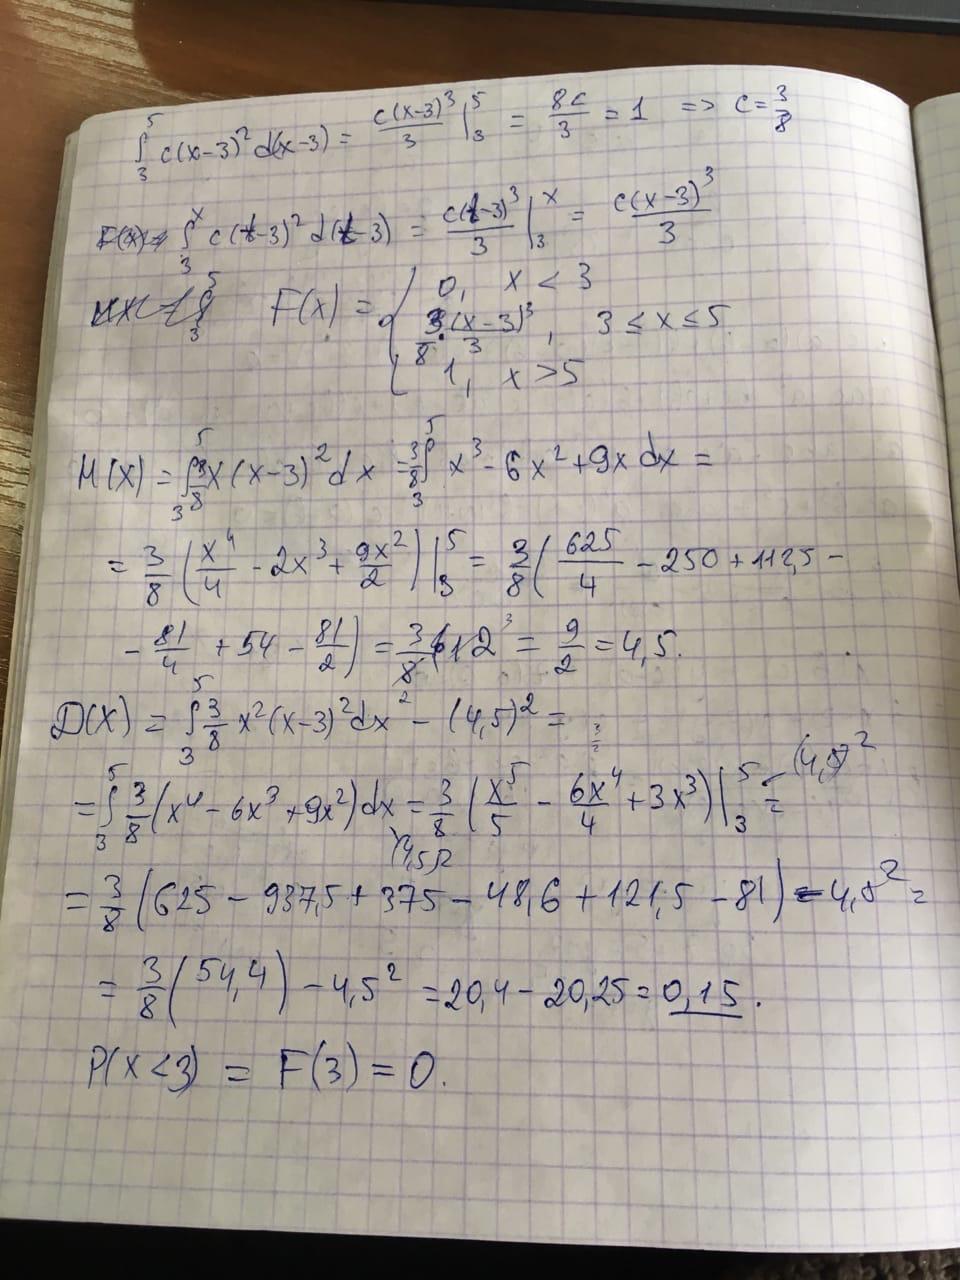 ∫₃⁵ c(x-3)² d(x-3) = c(x-3)³/3 |₃⁵ = 8c/3 = 1 => c = 3/8
F(x) = ∫₃ˣ c(t-3)² d(t-3) = c(t-3)³/3 |₃ˣ = c(x-3)³/3
F(x) = { 0, x < 3
3/8 · (x-3)³/3, 3 ≤ x ≤ 5
1, x > 5
M(X) = ∫₃⁵ 3/8 x(x-3)² dx = 3/8 ∫₃⁵ x³ - 6x² + 9x dx =
= 3/8 (x⁴/4 - 2x³ + 9x²/2) |₃⁵ = 3/8 (625/4 - 250 + 112,5 -
- 81/4 + 54 - 81/2) = 3/8 · 12 = 9/2 = 4,5.
D(X) = ∫₃⁵ 3/8 x²(x-3)² dx - (4,5)² =
= ∫₃⁵ 3/8 (x⁴ - 6x³ + 9x²) dx = 3/8 (x⁵/5 - 6x⁴/4 + 3x³) |₃⁵ - (4,5)² =
(4,5)²
= 3/8 (625 - 937,5 + 375 - 48,6 + 121,5 - 81) - 4,5² =
= 3/8 (54,4) - 4,5² = 20,4 - 20,25 = 0,15.
P(X<3) = F(3) = 0.